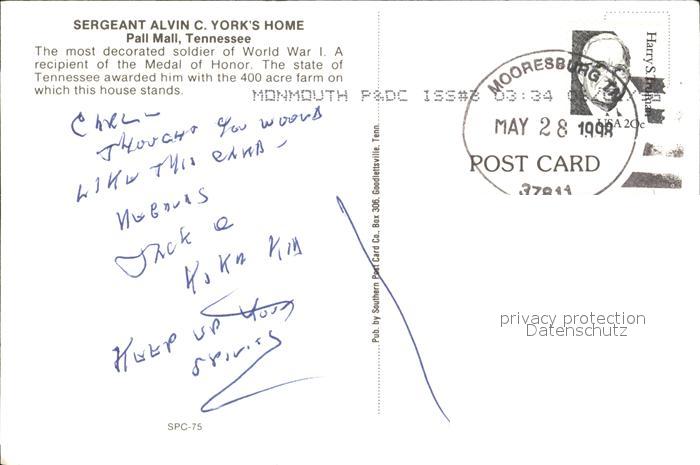 SERGEANT ALVIN C. YORK'S HOME
Pall Mall, Tennessee
The most decorated soldier of World War I. A
recipient of the Medal of Honor. The state of
Tennessee awarded him with the 400 acre farm on
which this house stands.
MONMOUTH P&DC ISS#3 03:34
MOORESBURG TN
MAY 28 1998
37811
Harry S. Truman
USA 20c
POST CARD
THOUGHT YOU WOULD
LIKE THIS CARD -
JACK
KEEP UP YOUR
SPIRITS
Pub. by Southern Post Card Co., Box 306, Goodlettsville, Tenn.
privacy protection
Datenschutz
SPC-75